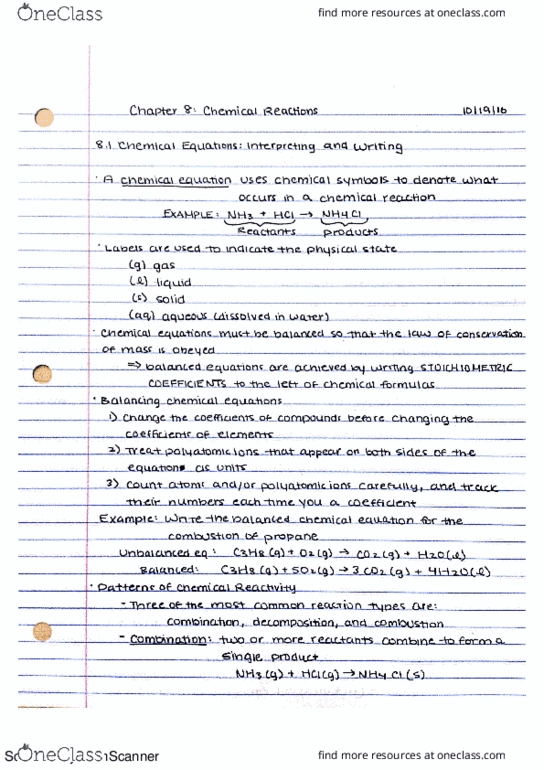 OneClass find more resources at oneclass.com
Chapter 8: Chemical Reactions 10/19/16
8.1 Chemical Equations: Interpreting and Writing
· A chemical equation uses chemical symbols to denote what
occurs in a chemical reaction
EXAMPLE: NH3 + HCl → NH4Cl
Reactants products
· Labels are used to indicate the physical state
(g) gas
(l) liquid
(s) solid
(aq) aqueous (dissolved in water)
· Chemical equations must be balanced so that the law of conservation
of mass is obeyed
⇒ balanced equations are achieved by writing STOICHIOMETRIC
COEFFICIENTS to the left of chemical formulas
· Balancing chemical equations
1) Change the coefficients of compounds before changing the
coefficients of elements
2) Treat polyatomic ions that appear on both sides of the
equation as units
3) Count atoms and/or polyatomic ions carefully, and track
their numbers each time you a coefficient
Example: Write the balanced chemical equation for the
combustion of propane
Unbalanced eq: C3H8(g) + O2(g) → CO2(g) + H2O(l)
Balanced: C3H8(g) + 5O2(g) → 3CO2(g) + 4H2O(l)
· Patterns of Chemical Reactivity
- Three of the most common reaction types are:
combination, decomposition, and combustion
- Combination: two or more reactants combine to form a
single product
NH3(g) + HCl(g) → NH4Cl(s)
OneClass Scanner find more resources at oneclass.com